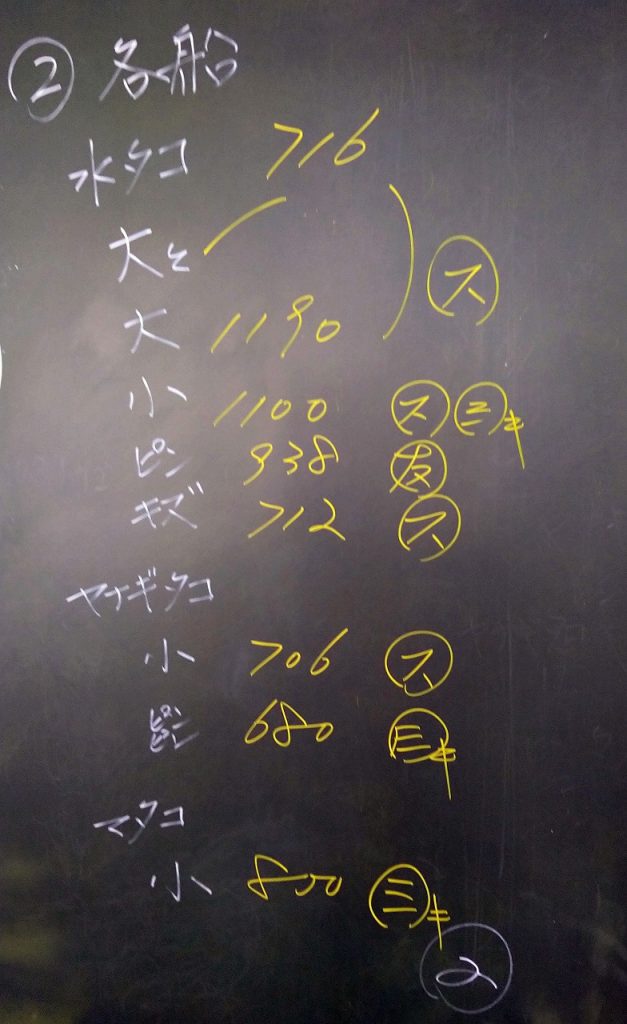 ② 各船
水タコ 716
大と
大 1190 ㋜
小 1100 ㋜ ㊂キ
ピン 938 友
キズ 712 ㋜
ヤナギタコ
小 706 ㋜
ピンピン 680 ㊂キ
マタコ
小 800 ㊂キ
②